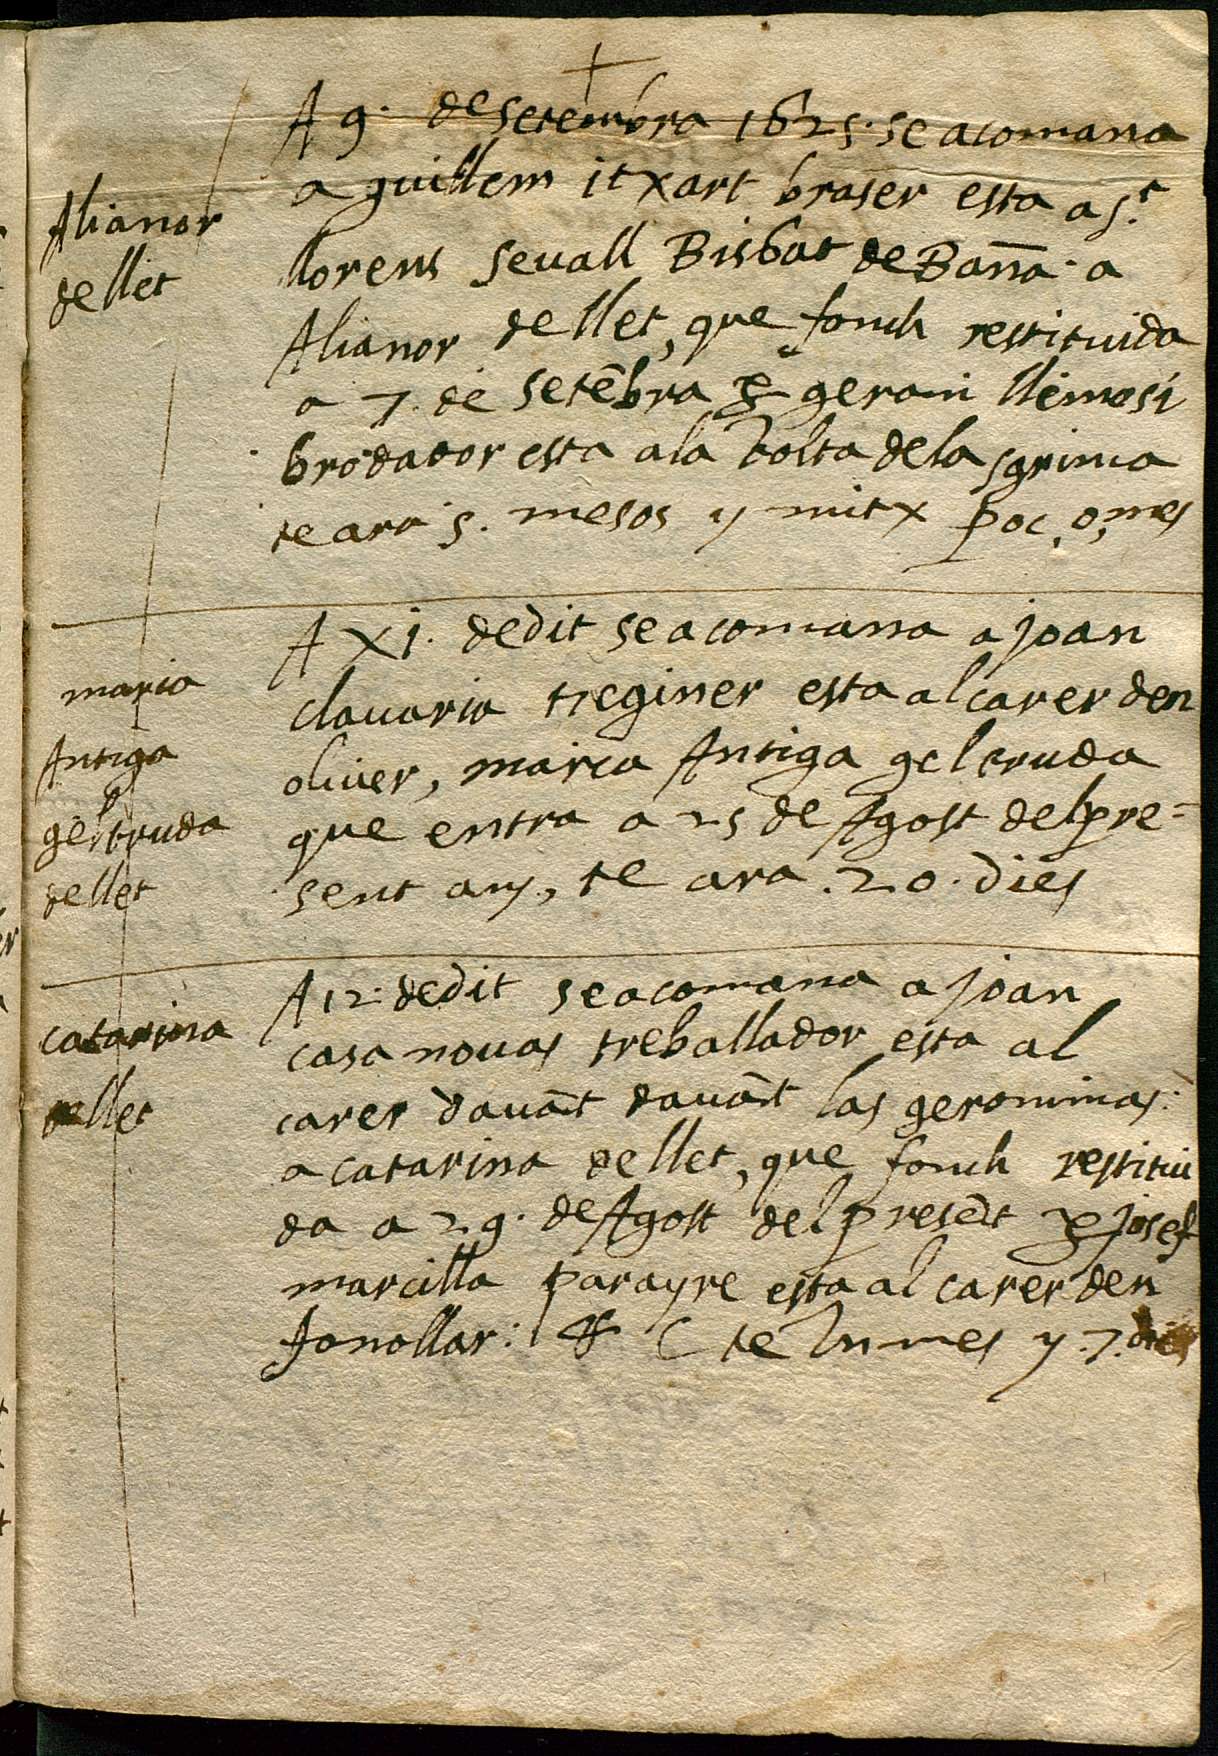 +
A 9. de setembra 1625. se acomana
a guillem itxart braser esta a S.t
llorens sevall Bisbat de Barña. a
Alianor de llet, que fonch restituida
a 7. de setēbra ꝑ geroni llemosi
brodador esta a la volta de la sgrima
te ara 5. mesos y mitx poc, o, mes
Alianor
de llet
A XI. de dit se acomana a joan
clavaria treginer esta al carer den
oliver, maria Antiga geltruda
que entra a 25 de Agost del pre-
sent any, te ara .20. dies
maria
Antiga
geltruda
de llet
A 12. de dit se acomana a joan
casanovas treballador esta al
carer davāt davāt las geronimas:
a catarina de llet, que fonch restitui
da a 29. de Agost del presēt ꝑ josef
marcilla parayre esta al carer den
fonollar: te vn mes y .7. dies
catarina
de llet